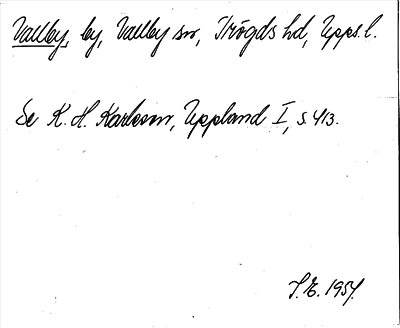 Vallby, by, Vallby sn, Trögds hd, Upps. l.
Se K. H. Karlsson, Uppland I, s. 413.
S. E. 1954.